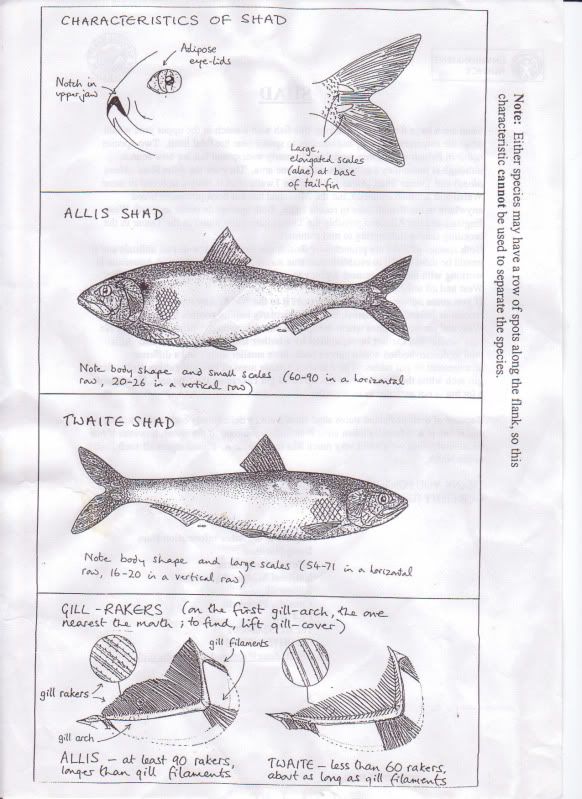 CHARACTERISTICS OF SHAD
Adipose
eye-lids
Notch in
upper jaw
Large,
elongated scales
(alae) at base
of tail-fin
ALLIS SHAD
Note body shape and small scales (60-90 in a horizontal
row, 20-26 in a vertical row)
TWAITE SHAD
Note body shape and large scales (54-71 in a horizontal
row, 16-20 in a vertical row)
GILL-RAKERS (on the first gill-arch, the one
nearest the mouth; to find, lift gill-cover)
gill filaments
gill rakers
gill arch
ALLIS - at least 90 rakers,
longer than gill filaments
TWAITE - less than 60 rakers,
about as long as gill filaments
Note: Either species may have a row of spots along the flank, so this
characteristic cannot be used to separate the species.